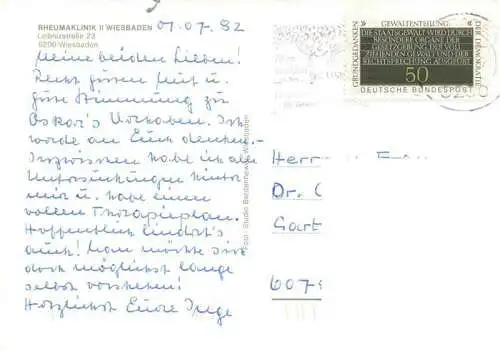 RHEUMAKLINIK II WIESBADEN
Leibnizstraße 23
6200 Wiesbaden
01.07.82
Meine beiden Lieben!
Recht guten Mut u.
gute Stimmung zu
Oskar's Vorhaben. Ich
werde an Euch denken. -
Inzwischen habe ich alle
Untersuchungen hinter
mir u. habe einen
vollen Therapieplan.
Hoffentlich hilft's
auch! Man möchte sich
doch möglichst lange
selbst vorstehen!
Herzlichst Eure Inge
Foto: Studio Wiesbaden
GRUNDGEDANKEN
GEWALTENTEILUNG:
DER DEMOKRATIE
DIE STAATSGEWALT WIRD DURCH
BESONDERE ORGANE DER
GESETZGEBUNG, DER VOLL-
ZIEHENDEN GEWALT UND DER
RECHTSPRECHUNG AUSGEÜBT
50
DEUTSCHE BUNDESPOST
Herr
Dr.
Gart
607